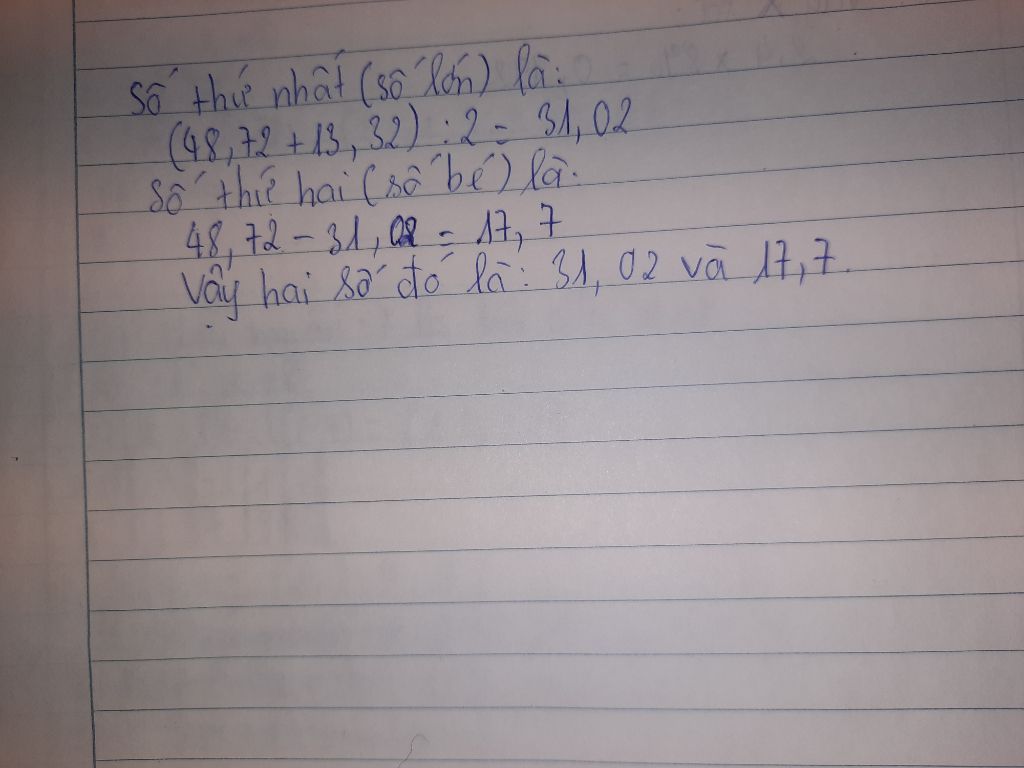 Số thứ nhất (số lớn) là:
(48,72 + 13,32) : 2 = 31,02
Số thứ hai (số bé) là:
48,72 - 31,02 = 17,7
Vậy hai số đó là: 31,02 và 17,7.